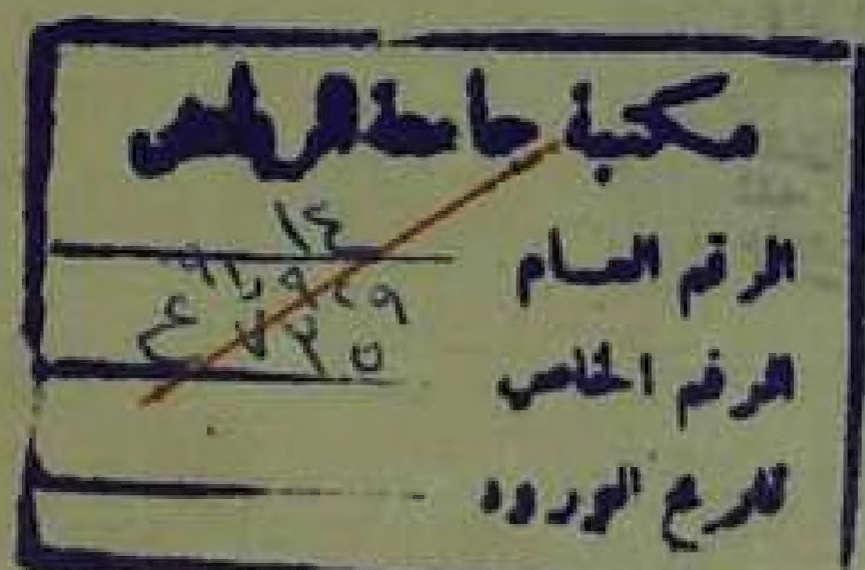 مكتبة جامعة الرياض
١٤
الرقم العام
الرقم الخاص
تاريخ الورود